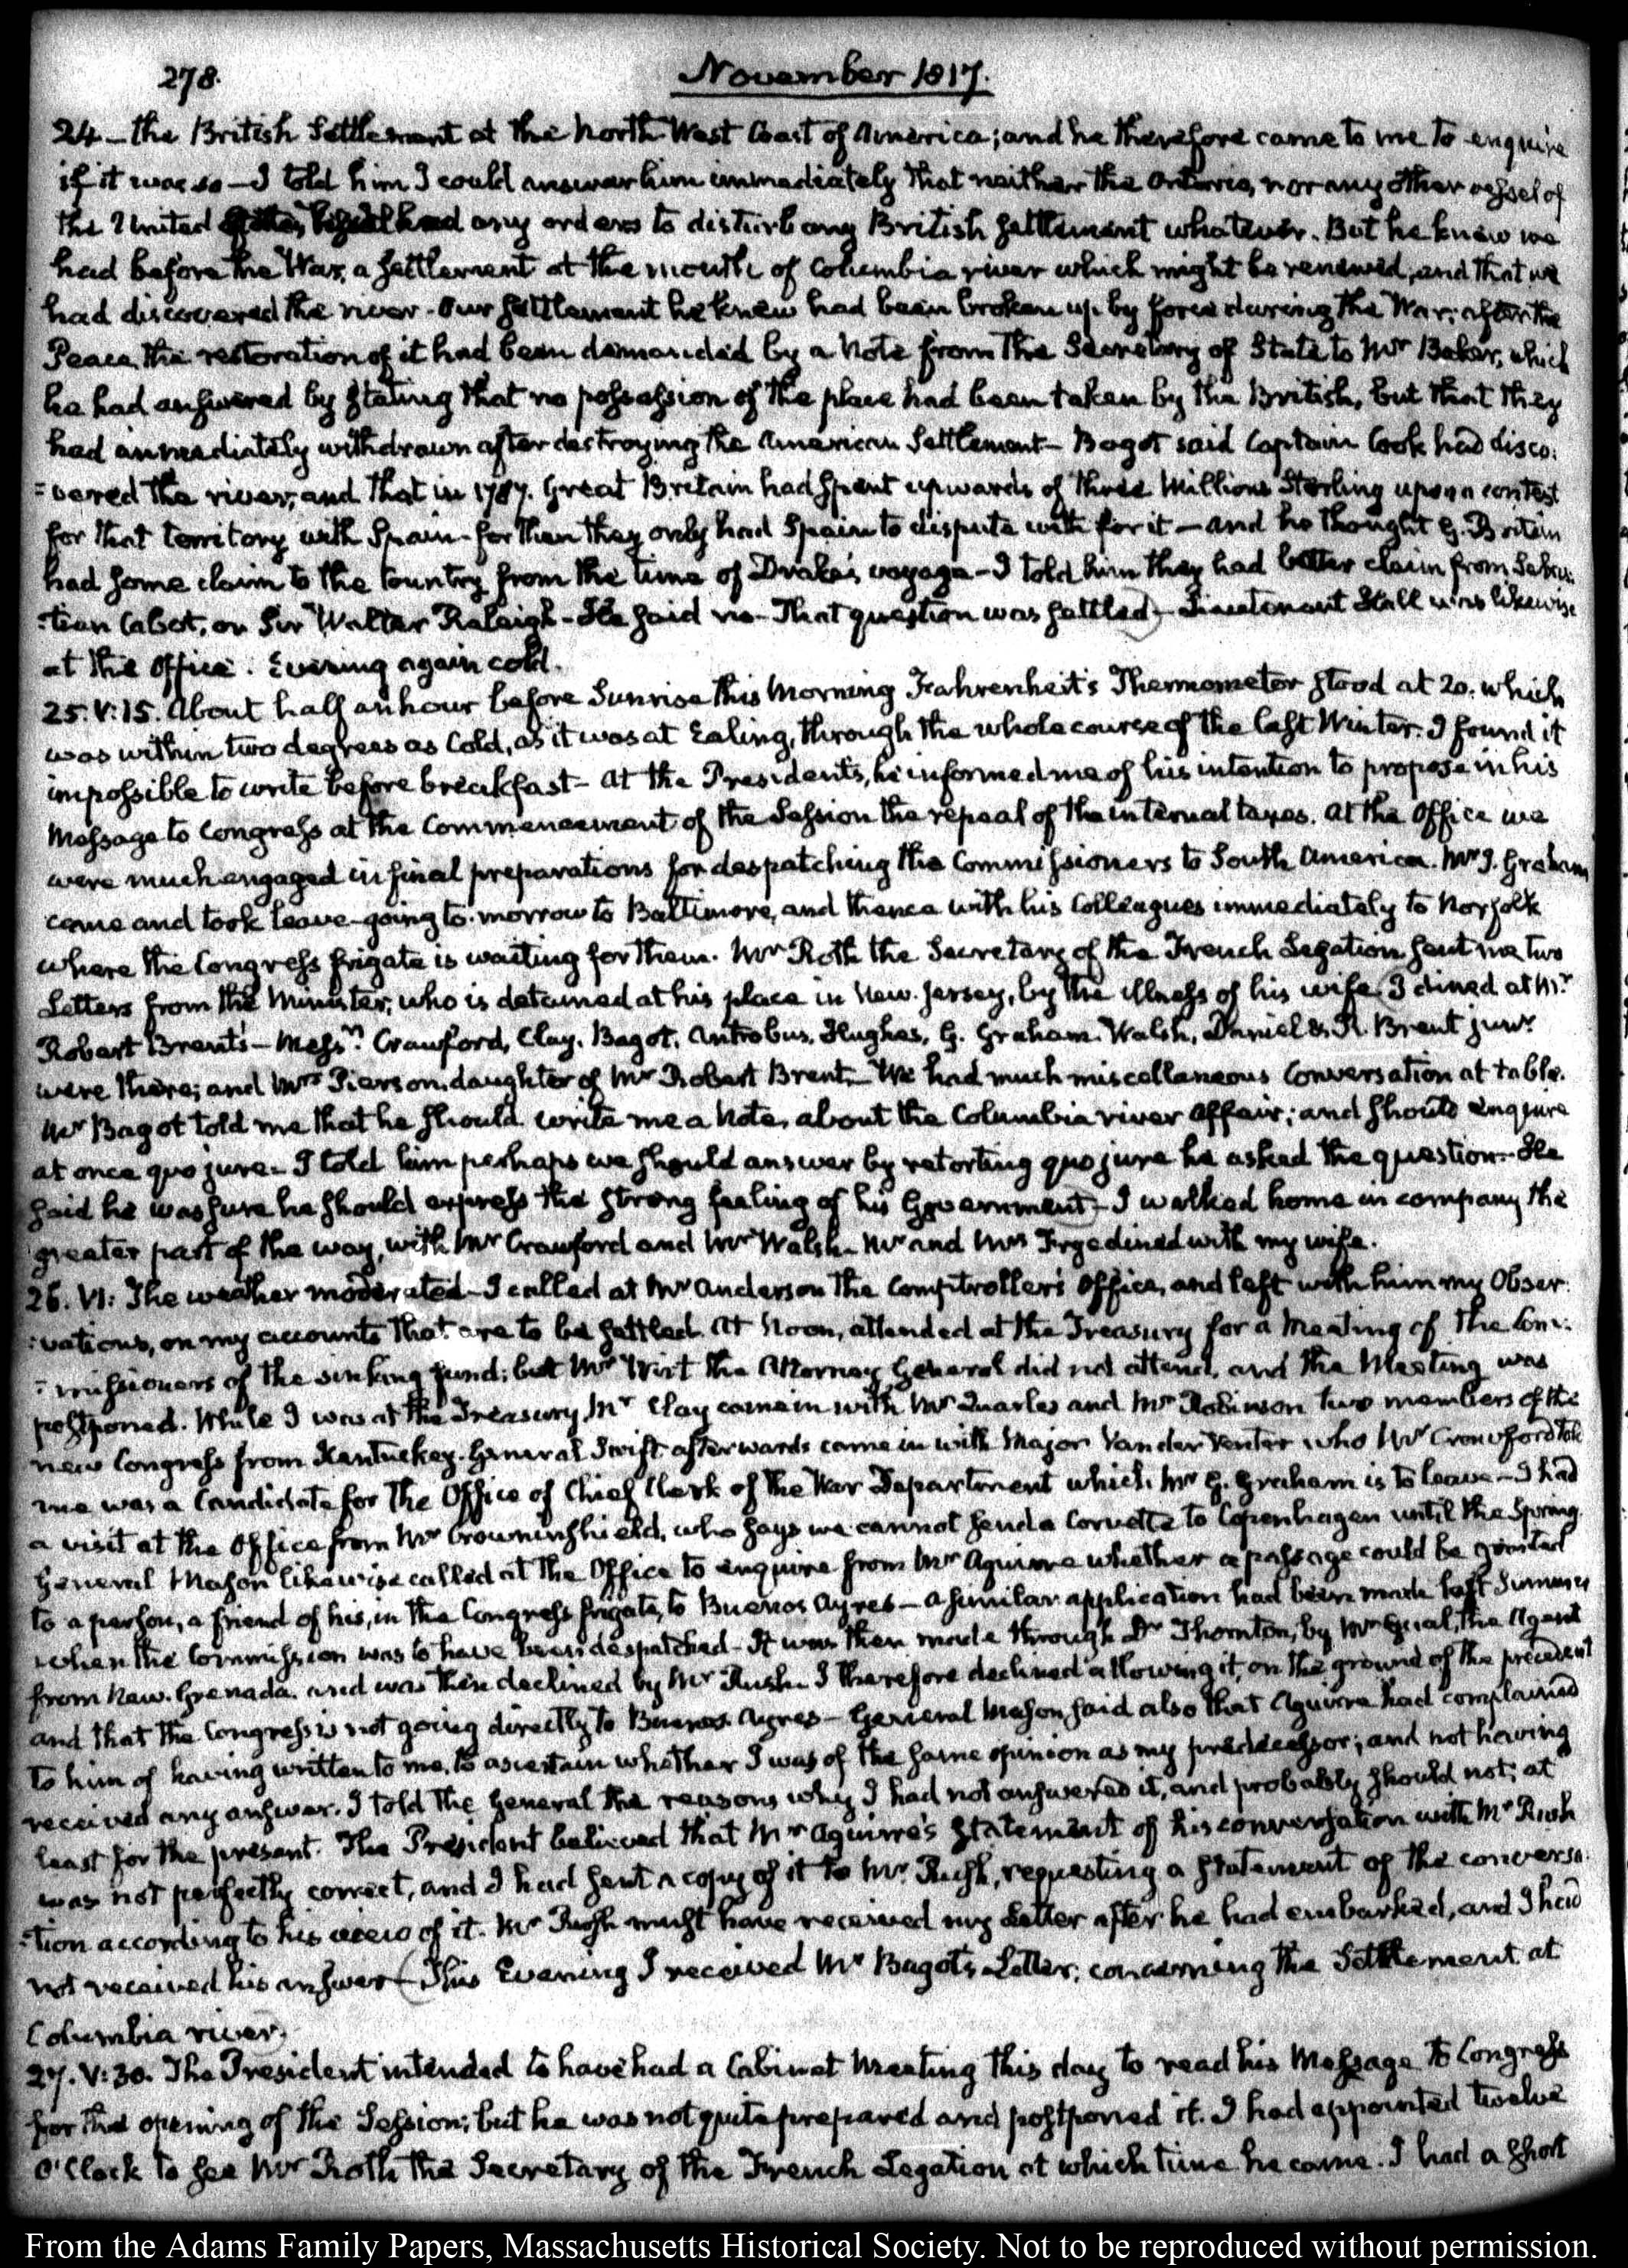 278.
November 1817.
24 - the British Settlement at the North West Coast of America; and he therefore came to me to enquire
if it was so - I told him I could answer him immediately that neither the Ontario, nor any other vessel of
the United States had any orders to disturb any British Settlement whatever. But he knew we
had before the War, a Settlement at the mouth of Columbia river which might be renewed, and that we
had discovered the river. Our Settlement he knew had been broken up by force during the War; after the
Peace, the restoration of it had been demanded by a Note from the Secretary of State to Mr Baker, which
he had answered by stating that no possession of the place had been taken by the British, but that they
had immediately withdrawn after destroying the American Settlement - Bagot said Captain Cook had disco:
:vered the river; and that in 1787. Great Britain had spent upwards of three Millions Sterling upon a contest
for that territory with Spain - for then they only had Spain to dispute with for it - and he thought G. Britain
had some claim to the Country from the time of Drake's voyage - I told him they had better claim from Sebas:
:tian Cabot, or Sir Walter Raleigh - He said no - That question was settled) - Lieutenant Hall was likewise
at the Office. Evening again cold.
25. V:15. About half an hour before Sunrise this Morning Fahrenheit's Thermometer stood at 20. which
was within two degrees as Cold, as it was at Ealing, through the whole course of the last Winter. I found it
impossible to write before breakfast - At the President's, he informed me of his intention to propose in his
Message to Congress at the Commencement of the Session the repeal of the internal taxes. At the Office we
were much engaged in final preparations for despatching the Commissioners to South America. Mr J. Graham
came and took leave - going to-morrow to Baltimore, and thence with his Colleagues immediately to Norfolk
where the Congress frigate is waiting for them. Mr Roth the Secretary of the French Legation sent me two
Letters from the Minister, who is detained at his place in New-Jersey, by the illness of his wife. I dined at Mr
Robert Brent's - Messrs Crawford, Clay, Bagot, Antrobus, Hughes, G. Graham, Walsh, Daniel & R. Brent junr
were there; and Mrs Pierson, daughter of Mr Robert Brent. - We had much miscellaneous Conversation at table.
Mr Bagot told me that he should write me a Note, about the Columbia river affair; and should enquire
at once quo jure - I told him perhaps we should answer by retorting quo jure he asked the question - He
said he was sure he should express the strong feeling of his Government) - I walked home in company the
greater part of the way, with Mr Crawford and Mr Walsh - Mr and Mrs Frye dined with my wife.
26. VI: The weather moderated - I called at Mr Anderson the Comptroller's Office, and left with him my Obser:
:vations, on my accounts that are to be settled. At Noon, attended at the Treasury for a Meeting of the Com:
:missioners of the sinking fund; but Mr Wirt the Attorney General did not attend, and the Meeting was
postponed. While I was at the Treasury, Mr Clay came in with Mr Quarles and Mr Robinson two members of the
new Congress from Kentuckey. General Swift afterwards came in with Major Vander Venter who Mr Crawford told
me was a Candidate for the Office of Chief Clerk of the War Department which Mr G. Graham is to leave - I had
a visit at the Office from Mr Crowninshield, who says we cannot send a Corvette to Copenhagen until the Spring.
General Mason likewise called at the Office to enquire from Mr Aguirre whether a passage could be granted
to a person, a friend of his, in the Congress frigate, to Buenos Ayres - a similar application had been made last Summer
when the Commission was to have been despatched - It was then made through Dr Thornton, by Mr Gual, the Agent
from New-Grenada, and was then declined by Mr Rush. I therefore declined allowing it, on the ground of the precedent
and that the Congress is not going directly to Buenos Ayres - General Mason said also that Aguirre had complained
to him of having written to me, to ascertain whether I was of the same opinion as my predecessor; and not having
received any answer. I told the General the reasons why I had not answered it, and probably should not; at
least for the present. The President believed that Mr Aguirre's statement of his conversation with Mr Rush
was not perfectly correct, and I had sent a copy of it to Mr Rush, requesting a statement of the conversa:
:tion according to his view of it. Mr Rush must have received my Letter after he had embarked, and I had
not received his answer - (This Evening I received Mr Bagot's Letter, concerning the Settlement at
Columbia river.)
27. V:30. The President intended to have had a Cabinet Meeting this day to read his Message to Congress
for the opening of the Session; but he was not quite prepared and postponed it. I had appointed twelve
O'Clock to see Mr Roth the Secretary of the French Legation at which time he came. I had a short
From the Adams Family Papers, Massachusetts Historical Society. Not to be reproduced without permission.